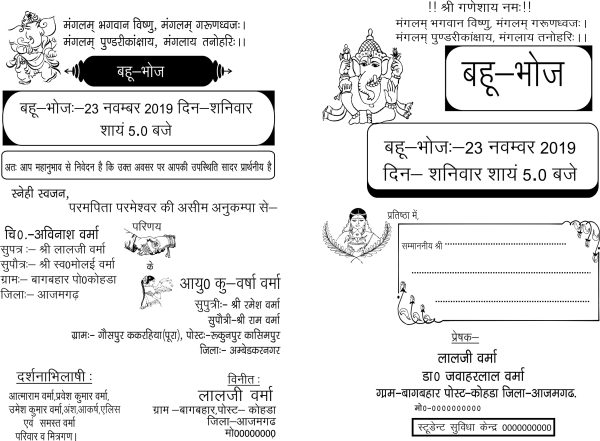 मंगलम् भगवान विष्णु, मंगलम् गरूणध्वजः।
मंगलम् पुण्डरीकांक्षाय, मंगलाय तनोहरिः।।
बहू–भोज
बहू–भोजः–23 नवम्बर 2019 दिन–शनिवार
शायं 5.0 बजे
अतः आप महानुभाव से निवेदन है कि उक्त अवसर पर आपकी उपस्थिति सादर प्रार्थनीय है
स्नेही स्वजन,
परमपिता परमेश्वर की असीम अनुकम्पा से–
चि0.–अविनाश वर्मा
सुपत्र :– श्री लालजी वर्मा
सुपौत्रः– श्री स्व0मोलई वर्मा
ग्रामः– बागबहार पो0कोहडा
जिलाः– आजमगढ़
परिणय
के
आयु0 कु–वर्षा वर्मा
सुपुत्रीः– श्री रमेश वर्मा
सुपौत्री–श्री राम वर्मा
ग्रामः– गौसपुर ककरहिया(पूरा), पोस्टः–रूकुनपुर कासिमपुर
जिलाः– अम्बेडकरनगर
दर्शनाभिलाषी :
आत्माराम वर्मा,प्रवेश कुमार वर्मा,
उमेश कुमार वर्मा,अंश,आकर्ष,एलिस
एवं समस्त वर्मा
परिवार व मित्रगण।
विनीत :
लालजी वर्मा
ग्राम –बागबहार,पोस्ट– कोहडा
जिला–आजमगढ़
मो00000000
!! श्री गणेशाय नमः!!
मंगलम् भगवान विष्णु, मंगलम् गरूणध्वजः।
मंगलम् पुण्डरीकांक्षाय, मंगलाय तनोहरिः।।
बहू–भोज
बहू–भोजः–23 नवम्वर 2019
दिन– शनिवार शायं 5.0 बजे
प्रतिष्ठा में,
सम्माननीय श्री
प्रेषक–
लालजी वर्मा
डा0 जवाहरलाल वर्मा
ग्राम–बागबहार पोस्ट–कोहडा जिला–आजमगढ.
मो0–0000000000
स्टूडेन्ट सुविधा केन्द्र 0000000000